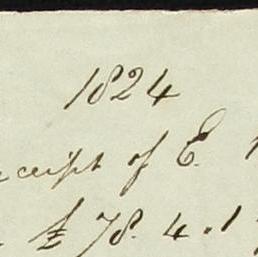 1824
eceipt of E.
£ 78. 4. 1